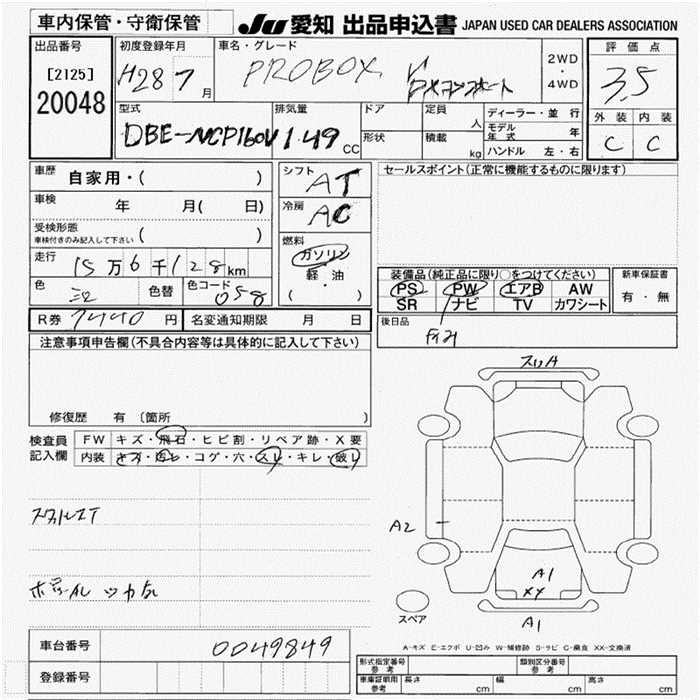 車内保管・守衛保管
JU 愛知 出品申込書 JAPAN USED CAR DEALERS ASSOCIATION
出品番号
[2125]
20048
初度登録年月
H28 7 月
車名・グレード
PROBOX V
DXコンフォート
2WD
・
4WD
評価点
3.5
外装 内装
C C
型式
DBE-NCP160V
排気量
1.49 CC
ドア
形状
定員 人
積載 kg
ディーラー・並行
モデル年式 年
ハンドル 左・右
車歴 自家用・( )
車検 年 月( 日)
受検形態
車検付きのみ記入して下さい ( )
走行 15万6千128km
色 色替 色コード 058
シフト AT
冷房 AC
燃料
ガソリン
軽・油
( ・ )
セールスポイント(正常に機能するものに限ります)
装備品(純正品に限り○をつけてください)
PS PW エアB AW
SR ナビ TV カワシート
新車保証書
有・無
R券 7440 円 名変通知期限 月 日
後日品
注意事項申告欄(不具合内容等は具体的に記入して下さい)
修復歴 有 〔箇所 〕
検査員記入欄
FW キズ・飛石・ヒビ割・リペア跡・X要
内装 キズ・汚レ・コゲ・穴・スレ・キレ・破レ
スリA
A2
A1
XX
A1
スペア
A-キズ E-エクボ U-凹み W-補修跡 S-サビ C-腐食 XX-交換済
車台番号 0049849
登録番号
形式指定番号 参考
類別区分番号 参考
車庫証明用 参考 長さ cm 幅 cm 高さ cm